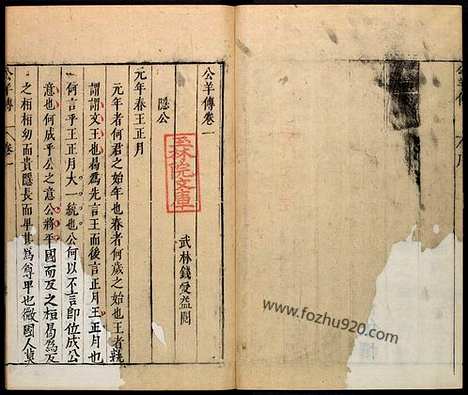 公羊傳卷一
武林錢受益閱
隱公
元年春王正月
元年者何君之始年也春者何歲之始也王者孰
謂謂文王也曷爲先言王而後言正月王正月也
何言乎王正月大一統也公何以不言即位成公
意也何成乎公之意公將平國而反之桓曷爲反
之桓桓幼而貴隱長而卑其爲尊卑也微國人莫
公羊傳
卷一
www.fozhu920.com